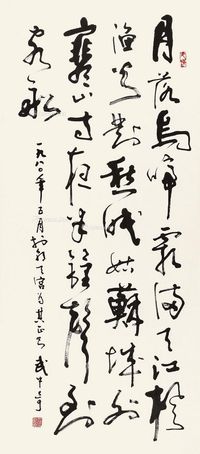 月落烏啼霜滿天江楓
漁火對愁眠姑蘇城外
寒山寺夜半鐘聲到
客船
一九八〇年五月於朝天宮为其正書 武中奇